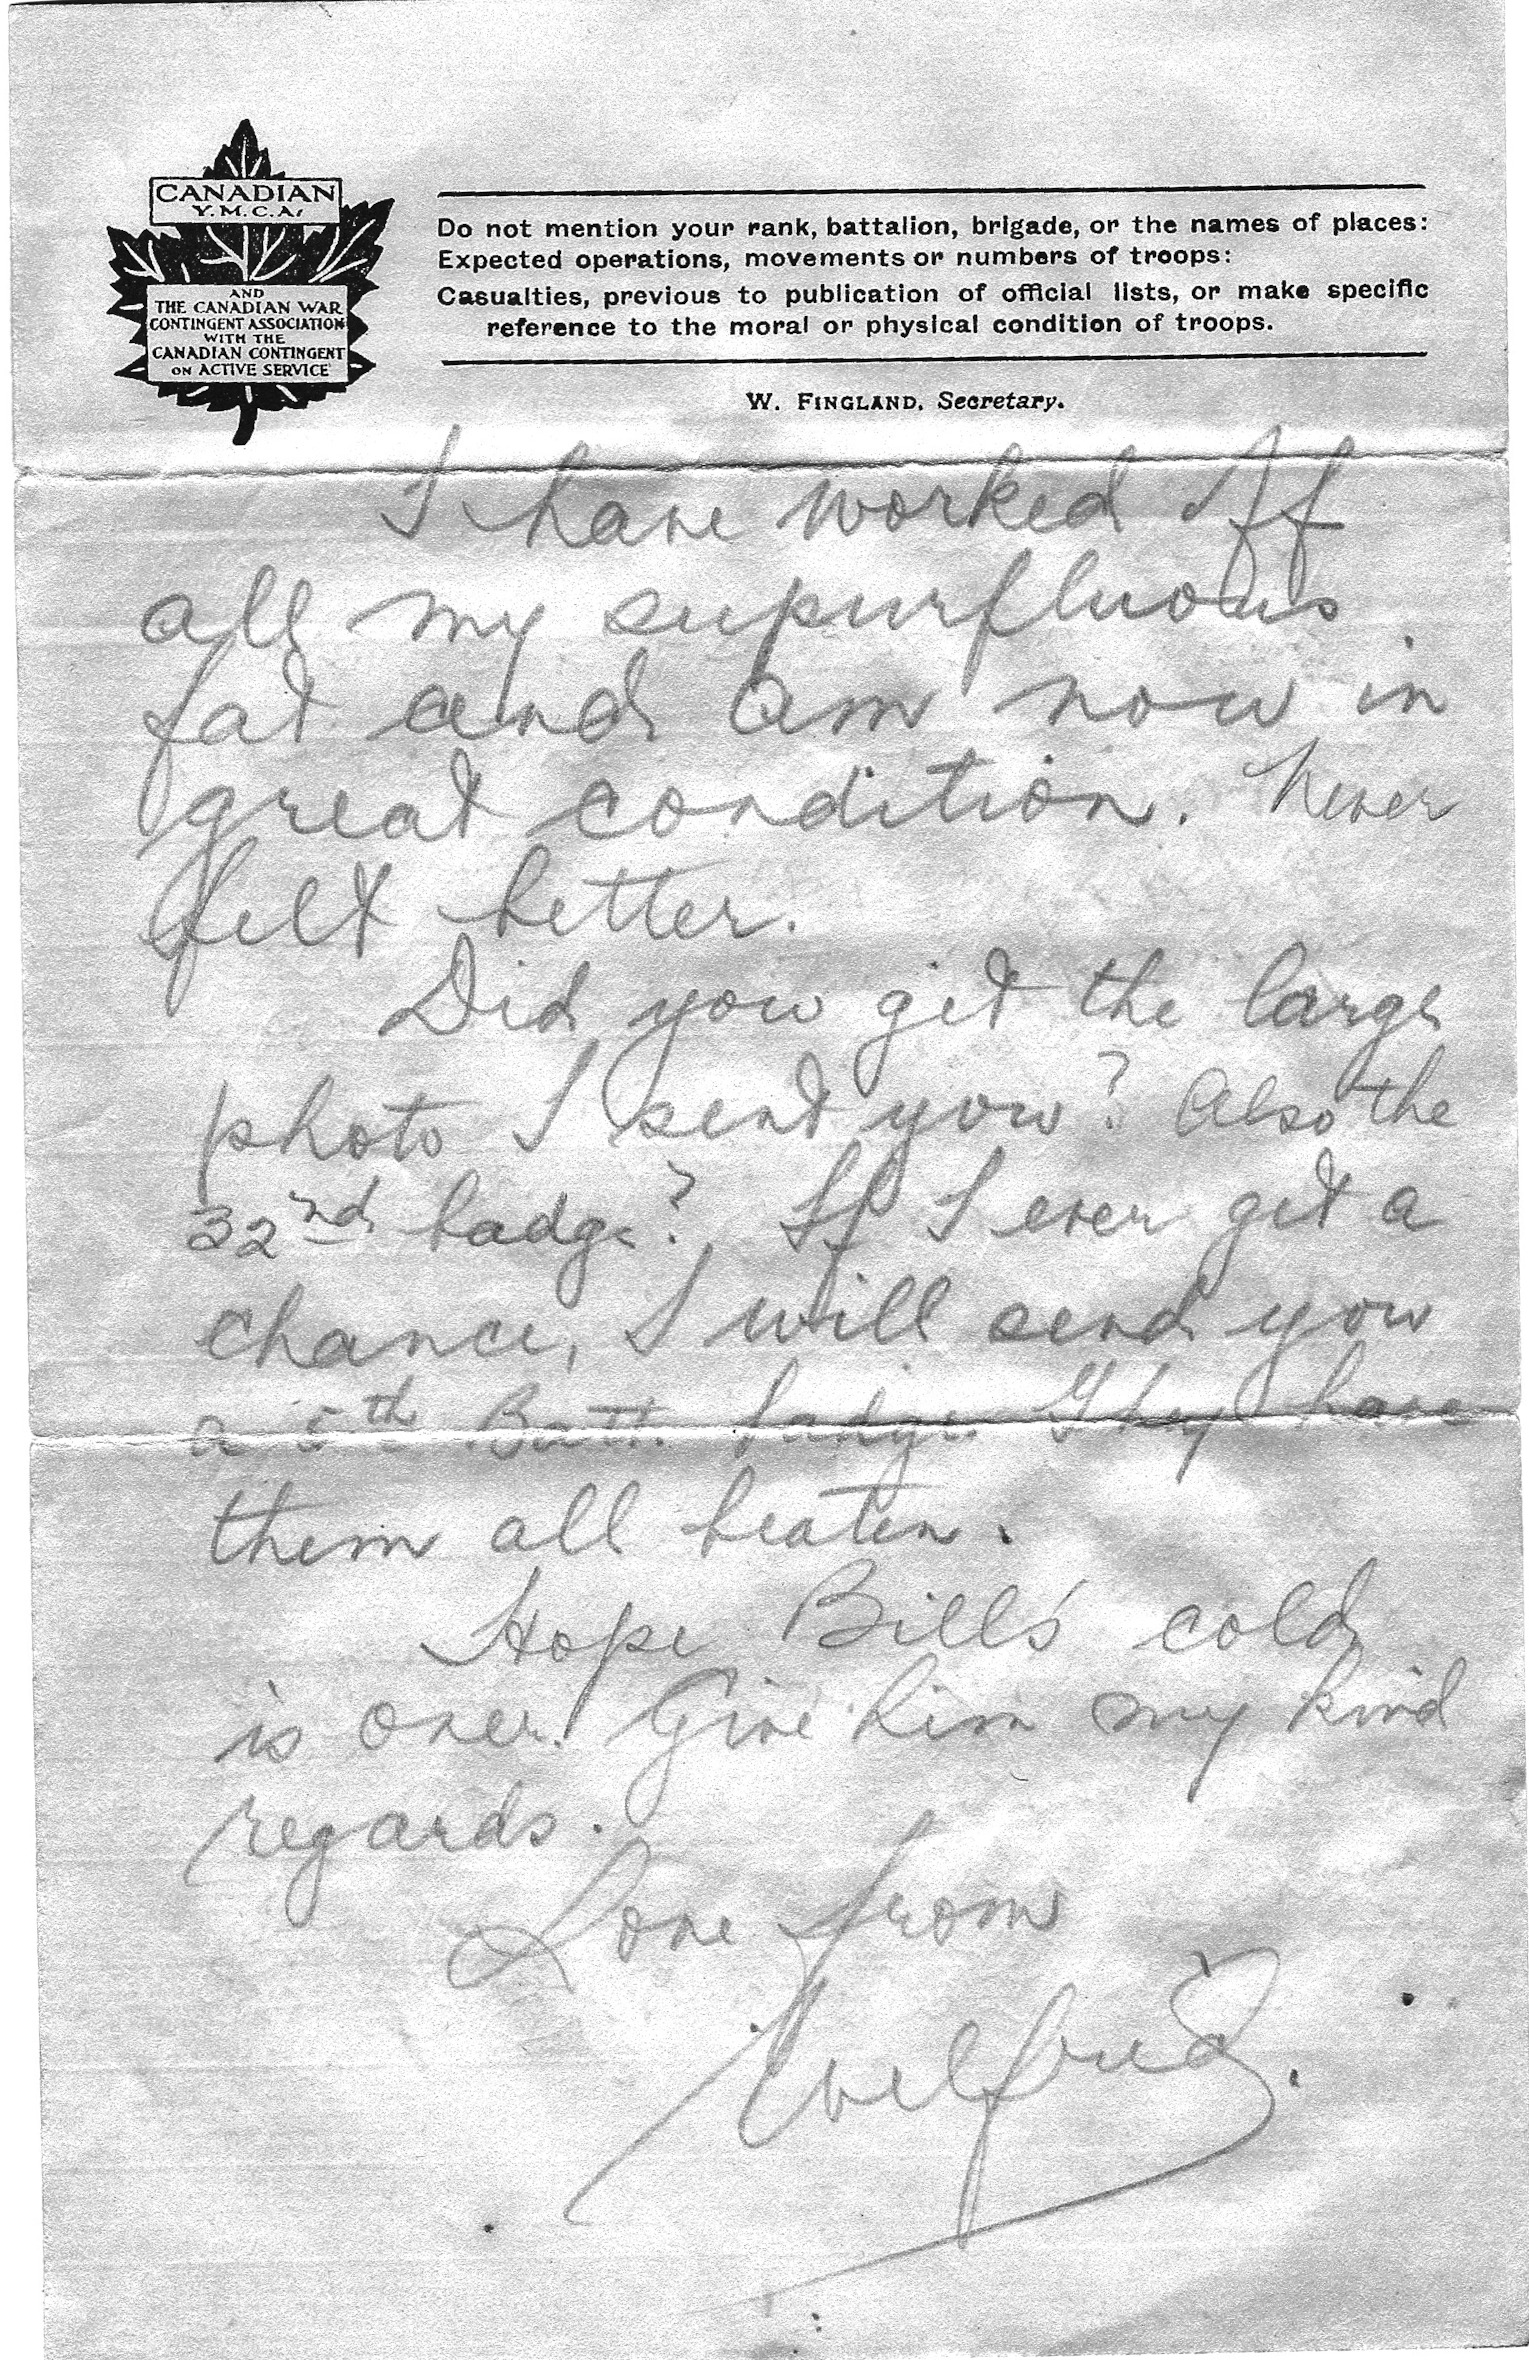 CANADIAN
Y.M.C.A.
AND
THE CANADIAN WAR
CONTINGENT ASSOCIATION
WITH THE
CANADIAN CONTINGENT
ON ACTIVE SERVICE
Do not mention your rank, battalion, brigade, or the names of places:
Expected operations, movements or numbers of troops:
Casualties, previous to publication of official lists, or make specific
reference to the moral or physical condition of troops.
W. FINGLAND, Secretary.
I have worked off
all my supurfluous
fat and am now in
great condition. Never
felt better.
Did you get the large
photo I sent you? Also the
32nd badge? If I ever get a
chance, I will send you
a 5th Batt. badge. They have
them all beaten.
Hope Bill's cold
is over. Give him my kind
regards.
Love from
Wilfrid.